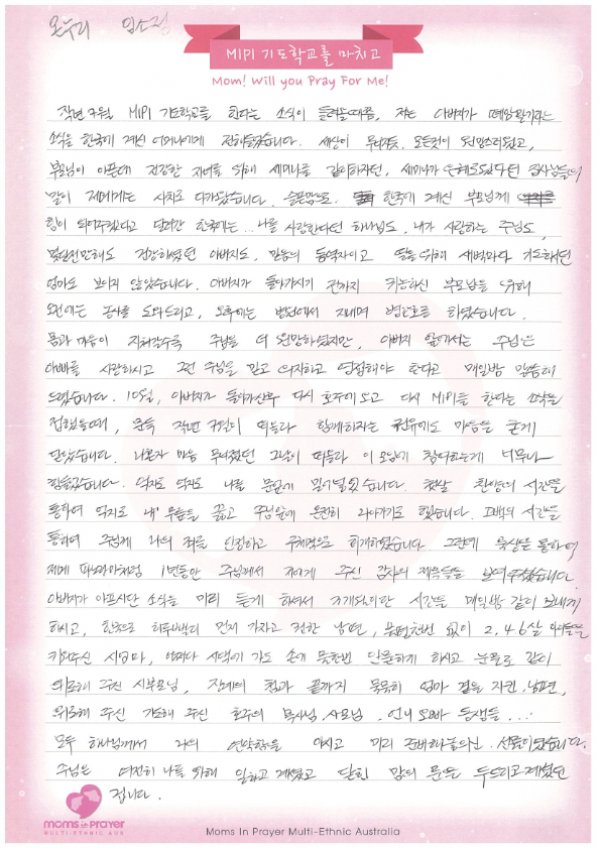 온누리 임소정
MIPI 기도학교를 마치고
Mom! Will you Pray For Me!
작년 9월 MIPI 기도학교를 한다는 소식이 들려올때쯤, 저는 아버지가
소식을 한국에 계신 어머니에게 전해들었습니다. 세상이 무너지듯, 모든것이 원망스러웠고,
부모님이 아픈데 건강한 자녀를 위해 세미나를 같이하자던, 세미나가 은혜로웠다던 집사님들의
말이 제게는 사치로 다가왔습니다. 슬픔안고 한국에 계신 부모님께
힘이 되어주겠다고 달려간 한국에는... 나를 사랑한다던 하나님도, 내가 사랑하는 주님도,
건강하셨던 아버지도, 믿음의 동역자이고 딸을 위해 새벽마다 기도하셨던
엄마도 보이지 않았습니다. 아버지가 돌아가시기 전까지 키는하신 부모님을 위해
오전에는 농사를 도와드리고, 오후에는 병원에서 지내며 병간호를 하였습니다.
몸과 마음이 지쳐갈수록 주님을 더 원망하였지만, 아버지 앞에서는 주님은
아빠를 사랑하시고 그런 주님을 믿고 의지하고 영접해야 한다고 매일밤 말씀해
드렸습니다. 10월, 아버지가 돌아가신후 다시 호주에 오고 다시 MIPI를 한다는 소식을
접했을때, 문득 작년 9월이 떠올라 함께하자는 권유에도 마음을 굳게
닫았습니다. 나혼자 마음 무너졌던 그날이 떠올라 이 모임에 참여하는게 너무나
힘들었습니다. 억지로 억지로 나를 문앞에 밀어넣었습니다. 첫날 찬양의 시간을
통하여 억지로 내 무릎을 꿇고 주님앞에 온전히 나아가기도 했습니다. 고백의 시간을
통하여 주님께 나의 죄를 인정하고 구체적으로 회개하였습니다. 그런데 묵상을 통하여
제게 파노라마처럼 1년동안 주님께서 저에게 주신 감사의 제목들을 보여주셨습니다.
아버지가 아프시단 소식을 미리 듣게 하셔서 시간을 매일밤 같이 보내게
하시고, 한국으로 하루빨리 먼저 가자고 권한 남편, 불평한번 없이 2, 4, 6살 아이들을
키워주신 시엄마, 시댁에 가도 손에 못한번 단련하게 하시고 눈물로 같이
위로해 주신 시부모님, 장례의 첨과 끝까지 묵묵히 엄마 곁을 지킨 남편,
위로해 주신 기도해 주신 호주의 목사님, 사모님, 언니 오빠 동생들...
모두 하나님께서 나의 연약함을 아시고 미리 준비하놓으신 선물이었습니다.
주님은 여전히 나를 위해 일하고 계셨고 닫힌 맘의 문을 두드리고 계셨던
겁니다.
moms in prayer
MULTI-ETHNIC AUS
Moms In Prayer Multi-Ethnic Australia